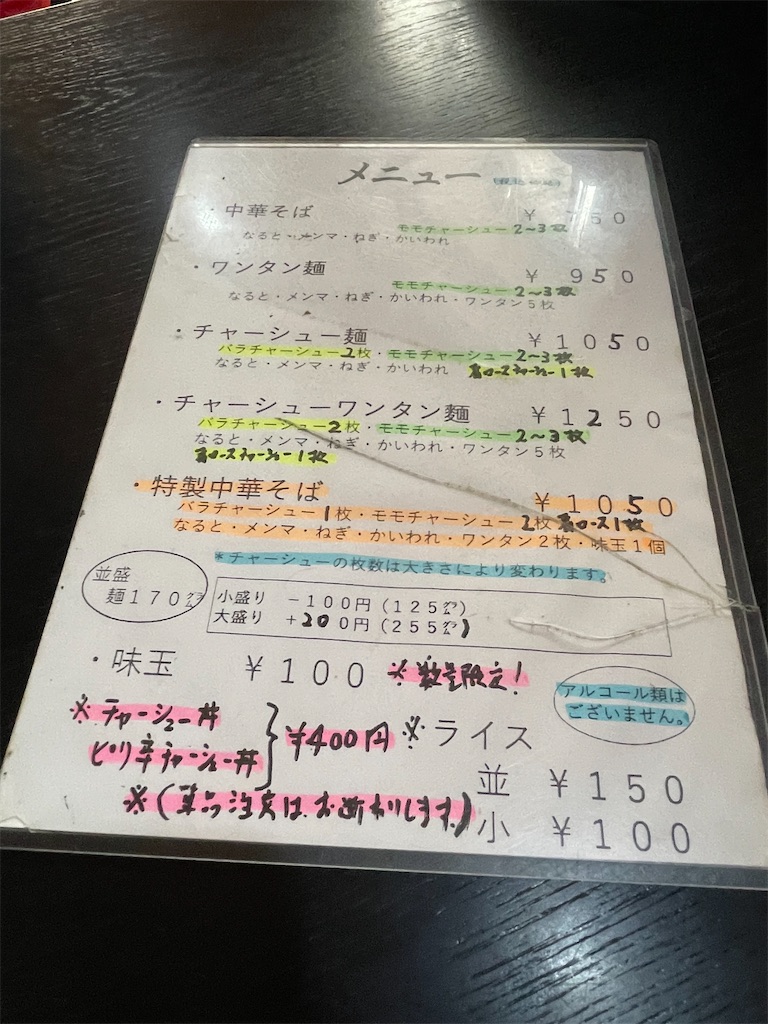 メニュー
・中華そば ¥ 50
モモチャーシュー2~3枚
なると・メンマ・ねぎ・かいわれ
・ワンタン麺 ¥ 950
モモチャーシュー2~3枚
なると・メンマ・ねぎ・かいわれ・ワンタン5枚
・チャーシュー麺 ¥1050
バラチャーシュー2枚・モモチャーシュー2~3枚
なると・メンマ・ねぎ・かいわれ 肩ロースチャーシュー1枚
・チャーシューワンタン麺 ¥1250
バラチャーシュー2枚・モモチャーシュー2~3枚
なると・メンマ・ねぎ・かいわれ・ワンタン5枚
肩ロースチャーシュー1枚
・特製中華そば ¥1050
バラチャーシュー1枚・モモチャーシュー2枚 肩ロース1枚
なると・メンマ・ねぎ・かいわれ・ワンタン2枚・味玉1個
*チャーシューの枚数は大きさにより変わります。
並盛
麺170㌘
小盛り -100円(125㌘)
大盛り +200円(255㌘)
・味玉 ¥100 ※数量限定!
アルコール類は
ございません。
※チャーシュー丼
ピリ辛チャーシュー丼
¥400円
※(単品注文はお断わりします。)
※ライス
並 ¥150
小 ¥100